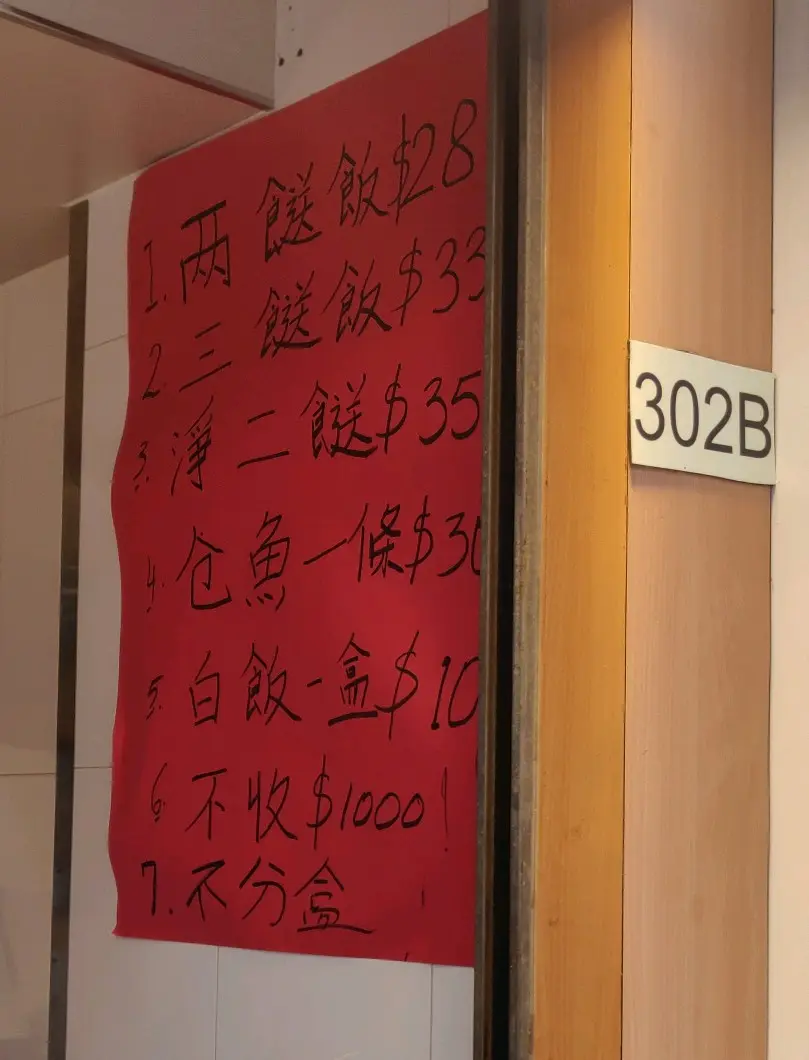 1. 两餸飯$28
2. 三餸飯$33
3. 淨二餸$35
4. 仓魚一條$30
5. 白飯一盒$10
6. 不收$1000!
7. 不分盒
302B